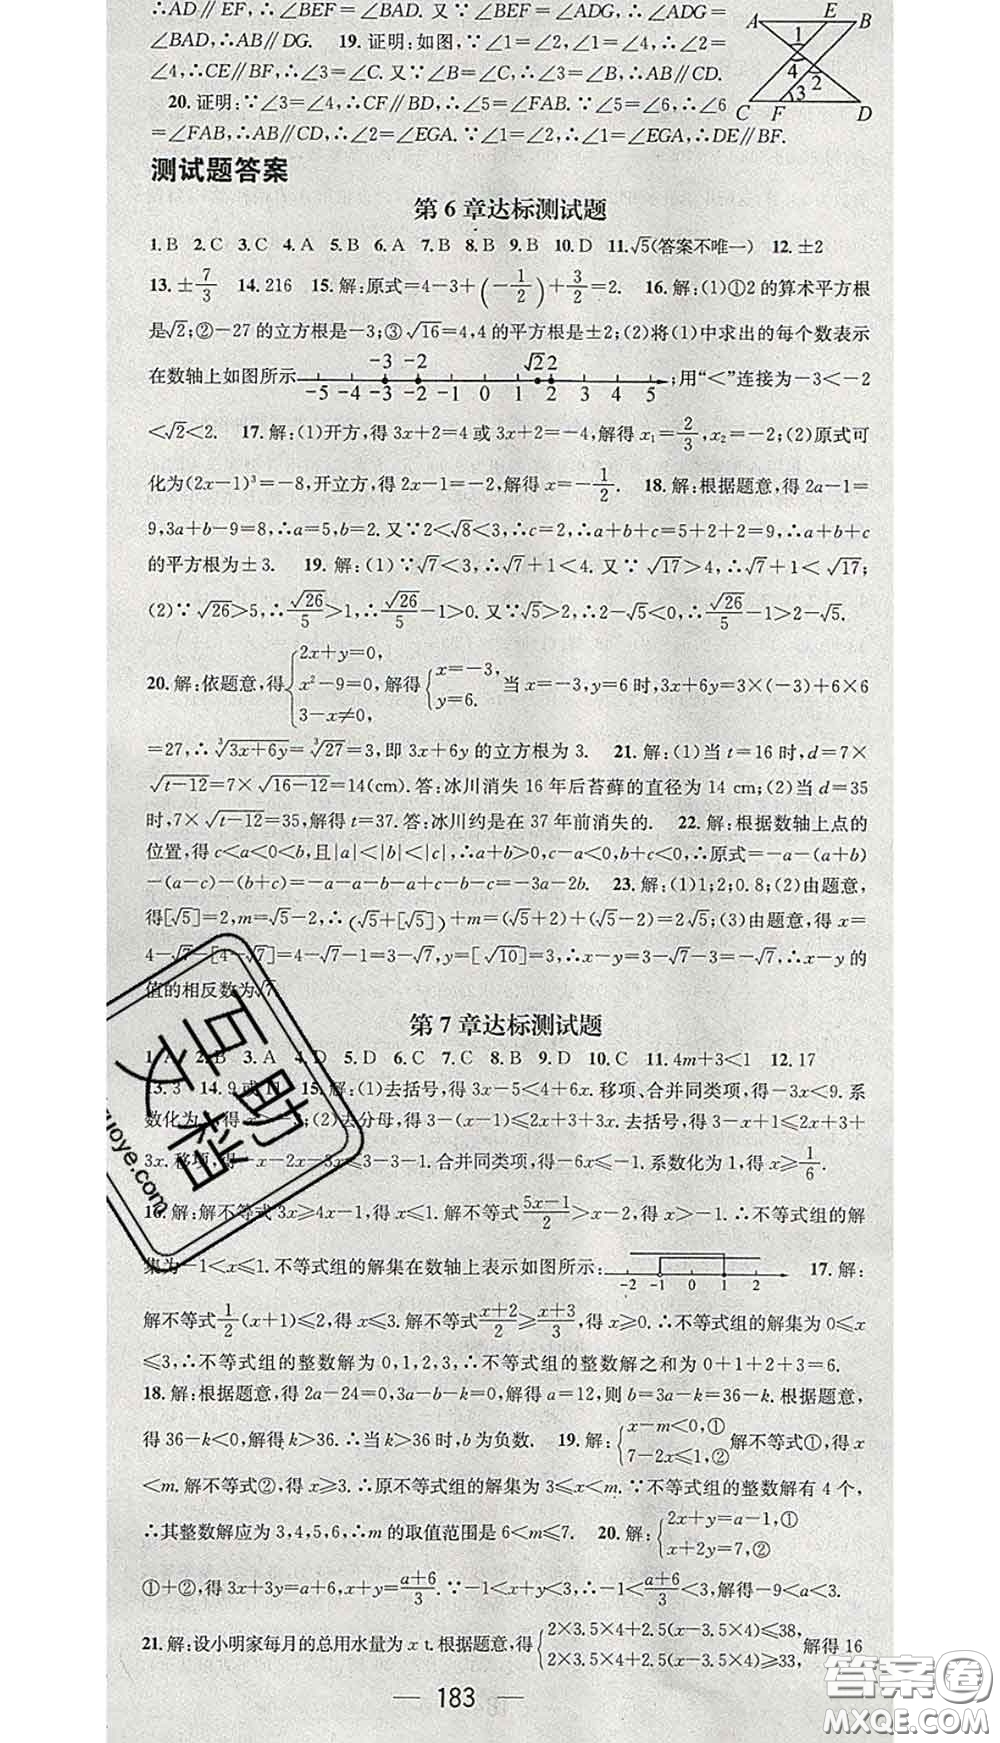 ∴AD∥EF,∴∠BEF=∠BAD. 又∵∠BEF=∠ADG,∴∠ADG=
∠BAD,∴AB∥DG. 19. 证明:如图,∵∠1=∠2,∠1=∠4,∴∠2=
∠4,∴CE∥BF,∴∠3=∠C. 又∵∠B=∠C,∴∠3=∠B,∴AB∥CD.
20. 证明:∵∠3=∠4,∴CF∥BD,∴∠5=∠FAB. ∵∠5=∠6,∴∠6
=∠FAB,∴AB∥CD,∴∠2=∠EGA. ∵∠1=∠2,∴∠1=∠EGA,∴DE∥BF.
A E B 1 4 2 3 C F D
测试题答案
第 6 章达标测试题
1. B 2. C 3. C 4. A 5. B 6. A 7. B 8. B 9. B 10. D 11. √5(答案不唯一) 12. ±2
13. ±7/3 14. 216 15. 解:原式=4-3+(-1/2)+3/2=2. 16. 解:(1)①2 的算术平方根
是√2;②-27 的立方根是-3;③√16=4,4 的平方根是±2;(2)将(1)中求出的每个数表示
在数轴上如图所示 -3 -2 √2 2 -5 -4 -3 -2 -1 0 1 2 3 4 5 ;用“<”连接为-3<-2
<√2<2. 17. 解:(1)开方,得 3x+2=4 或 3x+2=-4,解得 x₁=2/3,x₂=-2;(2)原式可
化为(2x-1)³=-8,开立方,得 2x-1=-2,解得 x=-1/2. 18. 解:根据题意,得 2a-1=
9,3a+b-9=8,∴a=5,b=2. 又∵2<√8<3,∴c=2,∴a+b+c=5+2+2=9,∴a+b+c
的平方根为±3. 19. 解:(1)∵√7<3,∴√7+1<4. 又∵√17>4,∴√7+1<√17;
(2)∵√26>5,∴√26/5>1,∴√26/5-1>0. 又∵√5>2,∴2-√5<0,∴√26/5-1>2-√5.
20. 解:依题意,得{2x+y=0, x²-9=0, 3-x≠0, 解得{x=-3, y=6. 当 x=-3,y=6 时,3x+6y=3×(-3)+6×6
=27,∴∛(3x+6y)=∛27=3,即 3x+6y 的立方根为 3. 21. 解:(1)当 t=16 时,d=7×
√(t-12)=7×√(16-12)=14(cm). 答:冰川消失 16 年后苔藓的直径为 14 cm;(2)当 d=35
时,7×√(t-12)=35,解得 t=37. 答:冰川约是在 37 年前消失的. 22. 解:根据数轴上点的
位置,得 c<a<0<b,且|a|<|b|<|c|,∴a+b>0,c-a<0,b+c<0,∴原式=-a-(a+b)
-(a-c)-(b+c)=-a-a-b-a+c-b-c=-3a-2b. 23. 解:(1)1;2;0.8;(2)由题意,
得[√5]=2,m=√5-2,∴(√5+[√5])+m=(√5+2)+(√5-2)=2√5;(3)由题意,得 x=
4-√7-[4-√7]=4-√7-1=3-√7,y=[√10]=3,∴x-y=3-√7-3=-√7,∴x-y 的
值的相反数为√7.
第 7 章达标测试题
1. A 2. B 3. A 4. D 5. D 6. C 7. C 8. B 9. D 10. C 11. 4m+3<1 12. 17
13. 3 14. 9 或 11 15. 解:(1)去括号,得 3x-5<4+6x. 移项、合并同类项,得-3x<9. 系
数化为 1,得 x>-3;(2)去分母,得 3-(x-1)≤2x+3+3x. 去括号,得 3-x+1≤2x+3+
3x. 移项,得-x-2x-3x≤3-3-1. 合并同类项,得-6x≤-1. 系数化为 1,得 x≥1/6.
16. 解:解不等式 3x≥4x-1,得 x≤1. 解不等式(5x-1)/2>x-2,得 x>-1. ∴不等式组的解
集为-1<x≤1. 不等式组的解集在数轴上表示如图所示: -2 -1 0 1 2 17. 解:
解不等式1/2(x+1)≤2,得 x≤3. 解不等式(x+2)/2≥(x+3)/3,得 x≥0. ∴不等式组的解集为 0≤x
≤3,∴不等式组的整数解为 0,1,2,3,∴不等式组的整数解之和为 0+1+2+3=6.
18. 解:根据题意,得 2a-24=0,3a-b-k=0,解得 a=12,则 b=3a-k=36-k. 根据题意,
得 36-k<0,解得 k>36. ∴当 k>36 时,b 为负数. 19. 解:{x-m<0,① 7-2x≤1,② 解不等式①,得 x
<m. 解不等式②,得 x≥3. ∴原不等式组的解集为 3≤x<m. ∵不等式组的整数解有 4 个,
∴其整数解应为 3,4,5,6,∴m 的取值范围是 6<m≤7. 20. 解:{2x+y=a-1,① x+2y=7,②
①+②,得 3x+3y=a+6,x+y=(a+6)/3. ∵-1<x+y<3,∴-1<(a+6)/3<3,解得-9<a<3.
21. 解:设小明家每月的总用水量为 x t. 根据题意,得{2×3.5×4+2.5(x-3.5×4)≤38, 2×3.5×4+2.5(x-3.5×4)≥33, 解得 16
183
互助文档
zuoye.com
答案圈
MXQE.COM